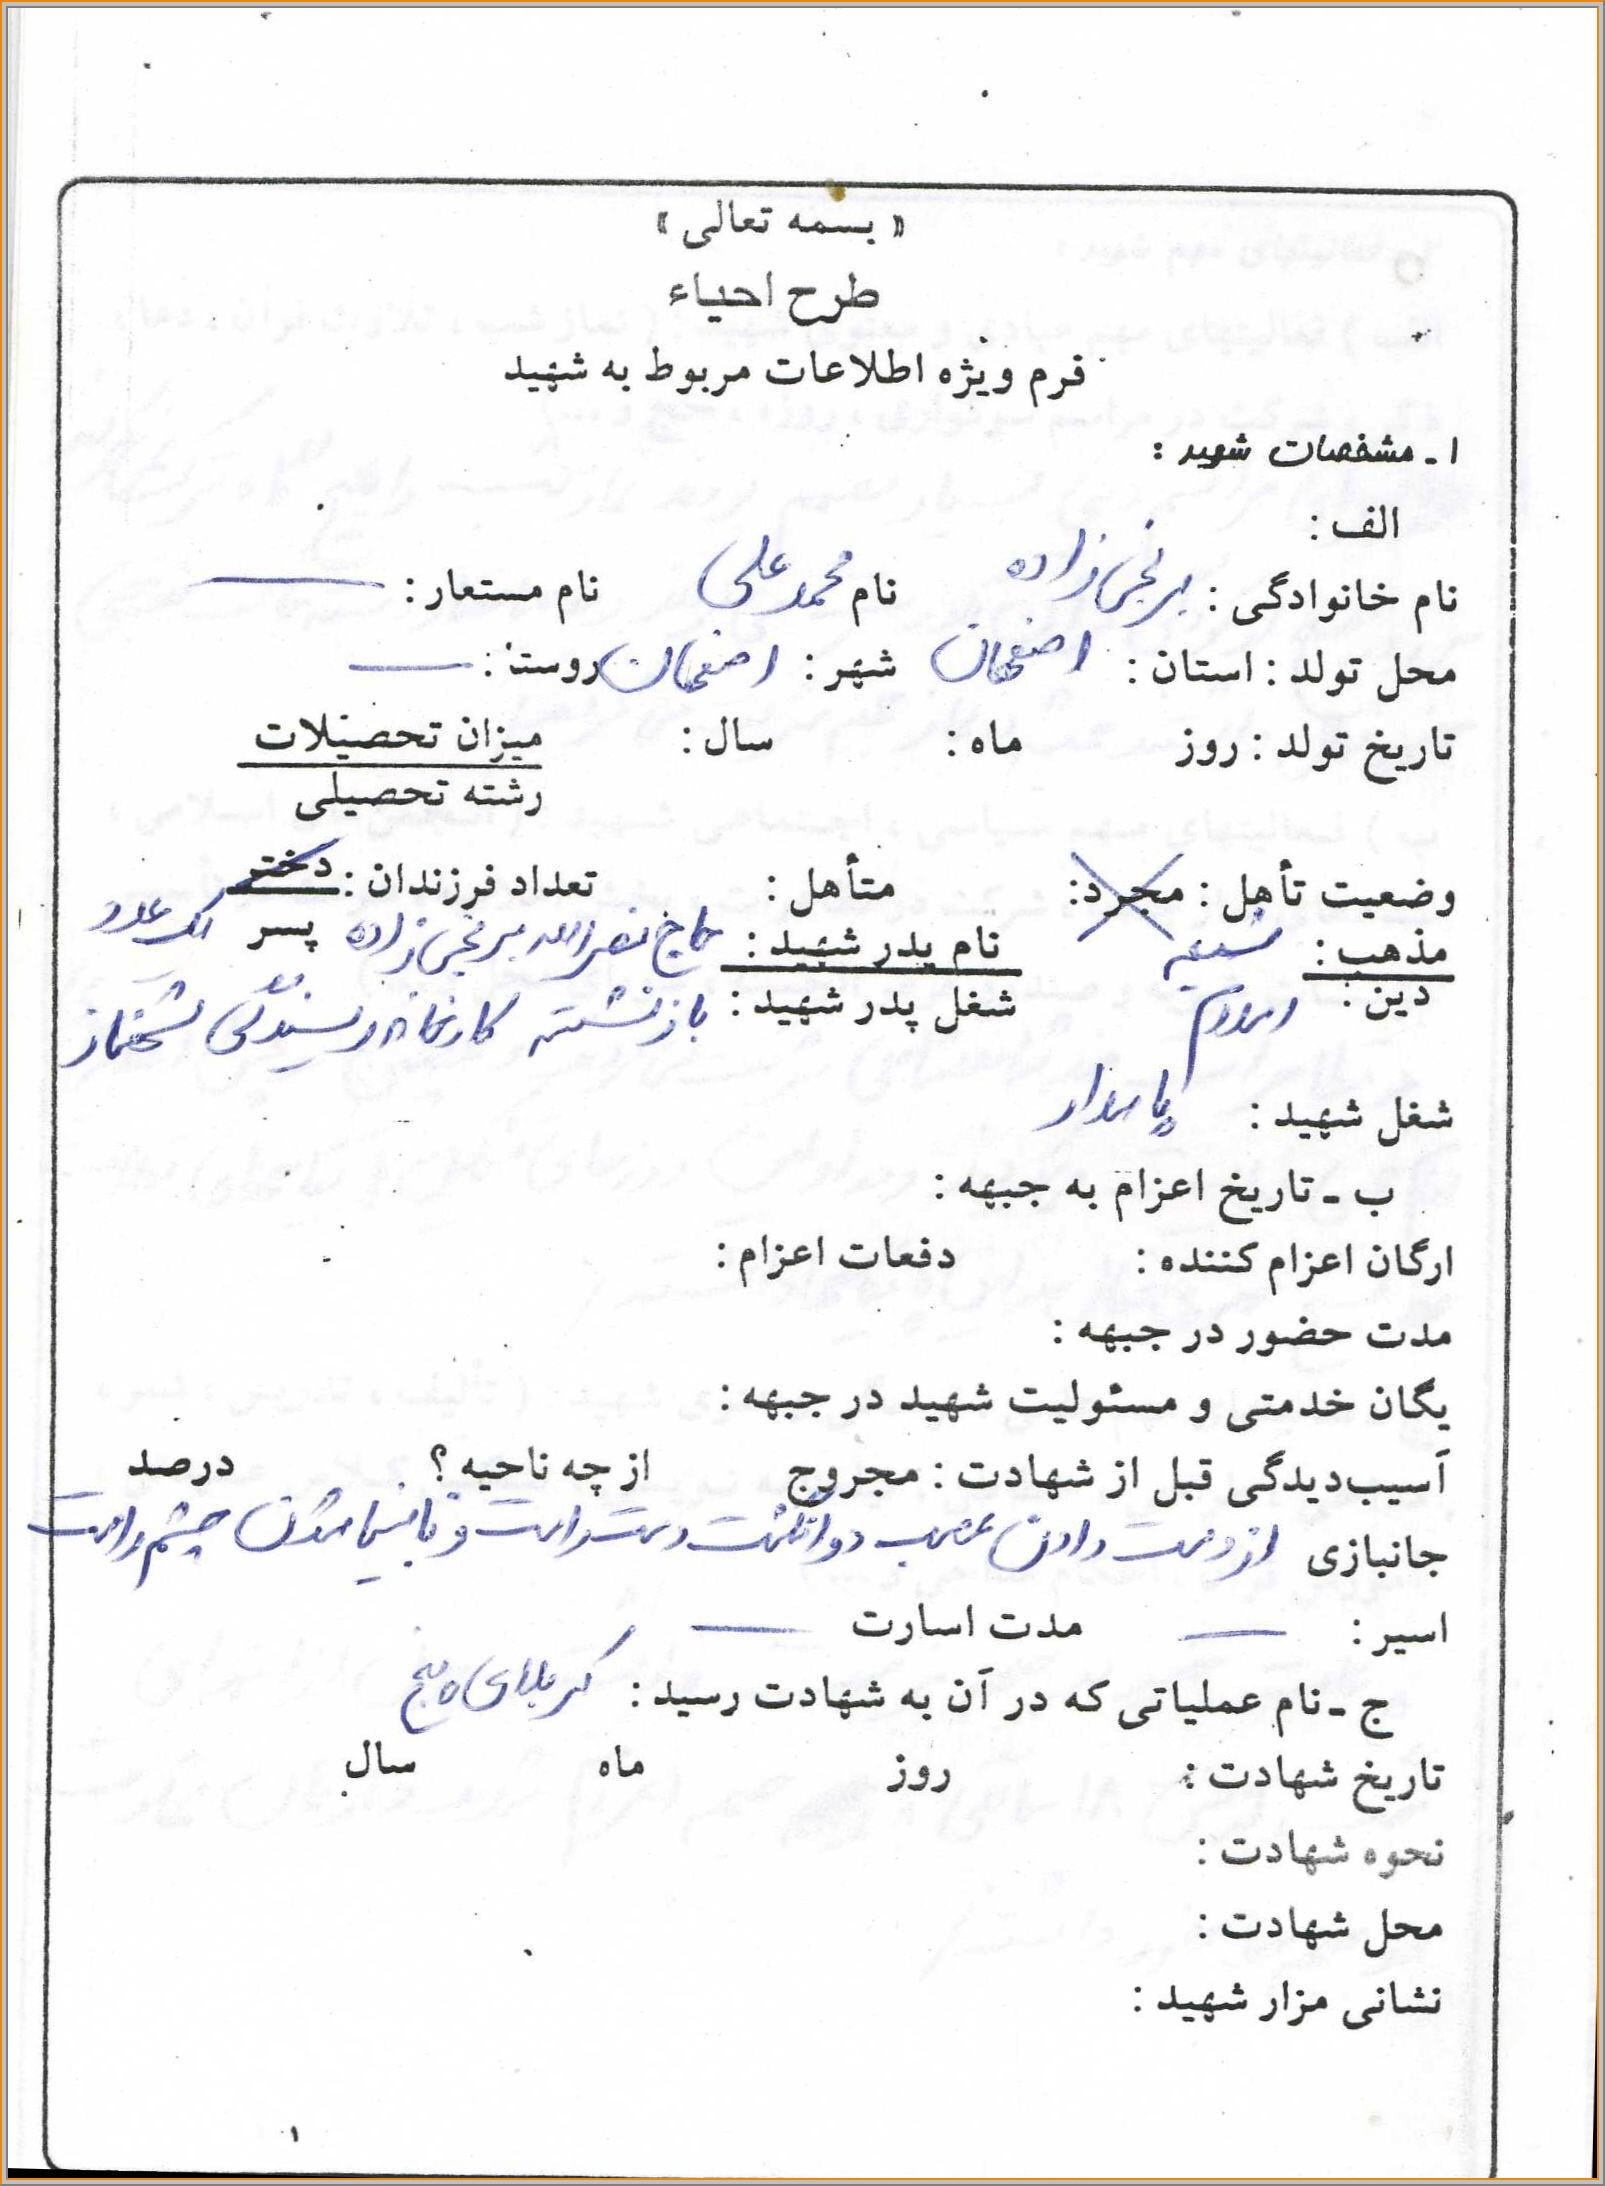 « بسمه تعالی »
طرح احیاء
فرم ویژه اطلاعات مربوط به شهید
۱ ـ مشخصات شهید :
الف :
نام خانوادگی : برنجی زاده نام محمد علی نام مستعار : ــــ
محل تولد : استان : اصفهان شهر : اصفهان روستا : ــــ
تاریخ تولد : روز ماه : سال : میزان تحصیلات
رشته تحصیلی
وضعیت تأهل : مجرد: متأهل : تعداد فرزندان : دختر
مذهب : شیعه نام پدر شهید : حاج نصرالله برنجی زاده پسر یک عدد
دین : اسلام شغل پدر شهید : بازنشسته کارخانه ریسندگی
شغل شهید : پاسدار
ب ـ تاریخ اعزام به جبهه :
ارگان اعزام کننده : دفعات اعزام :
مدت حضور در جبهه :
یگان خدمتی و مسئولیت شهید در جبهه :
آسیب‌دیدگی قبل از شهادت : مجروح از چه ناحیه ؟ درصد
جانبازی از دست دادن عصب دو انگشت دست راست و نابینا شدن چشم راست
اسیر : ــــ مدت اسارت ــــ
ج ـ نام عملیاتی که در آن به شهادت رسید : کربلای پنج
تاریخ شهادت : روز ماه سال
نحوه شهادت :
محل شهادت :
نشانی مزار شهید :
۱